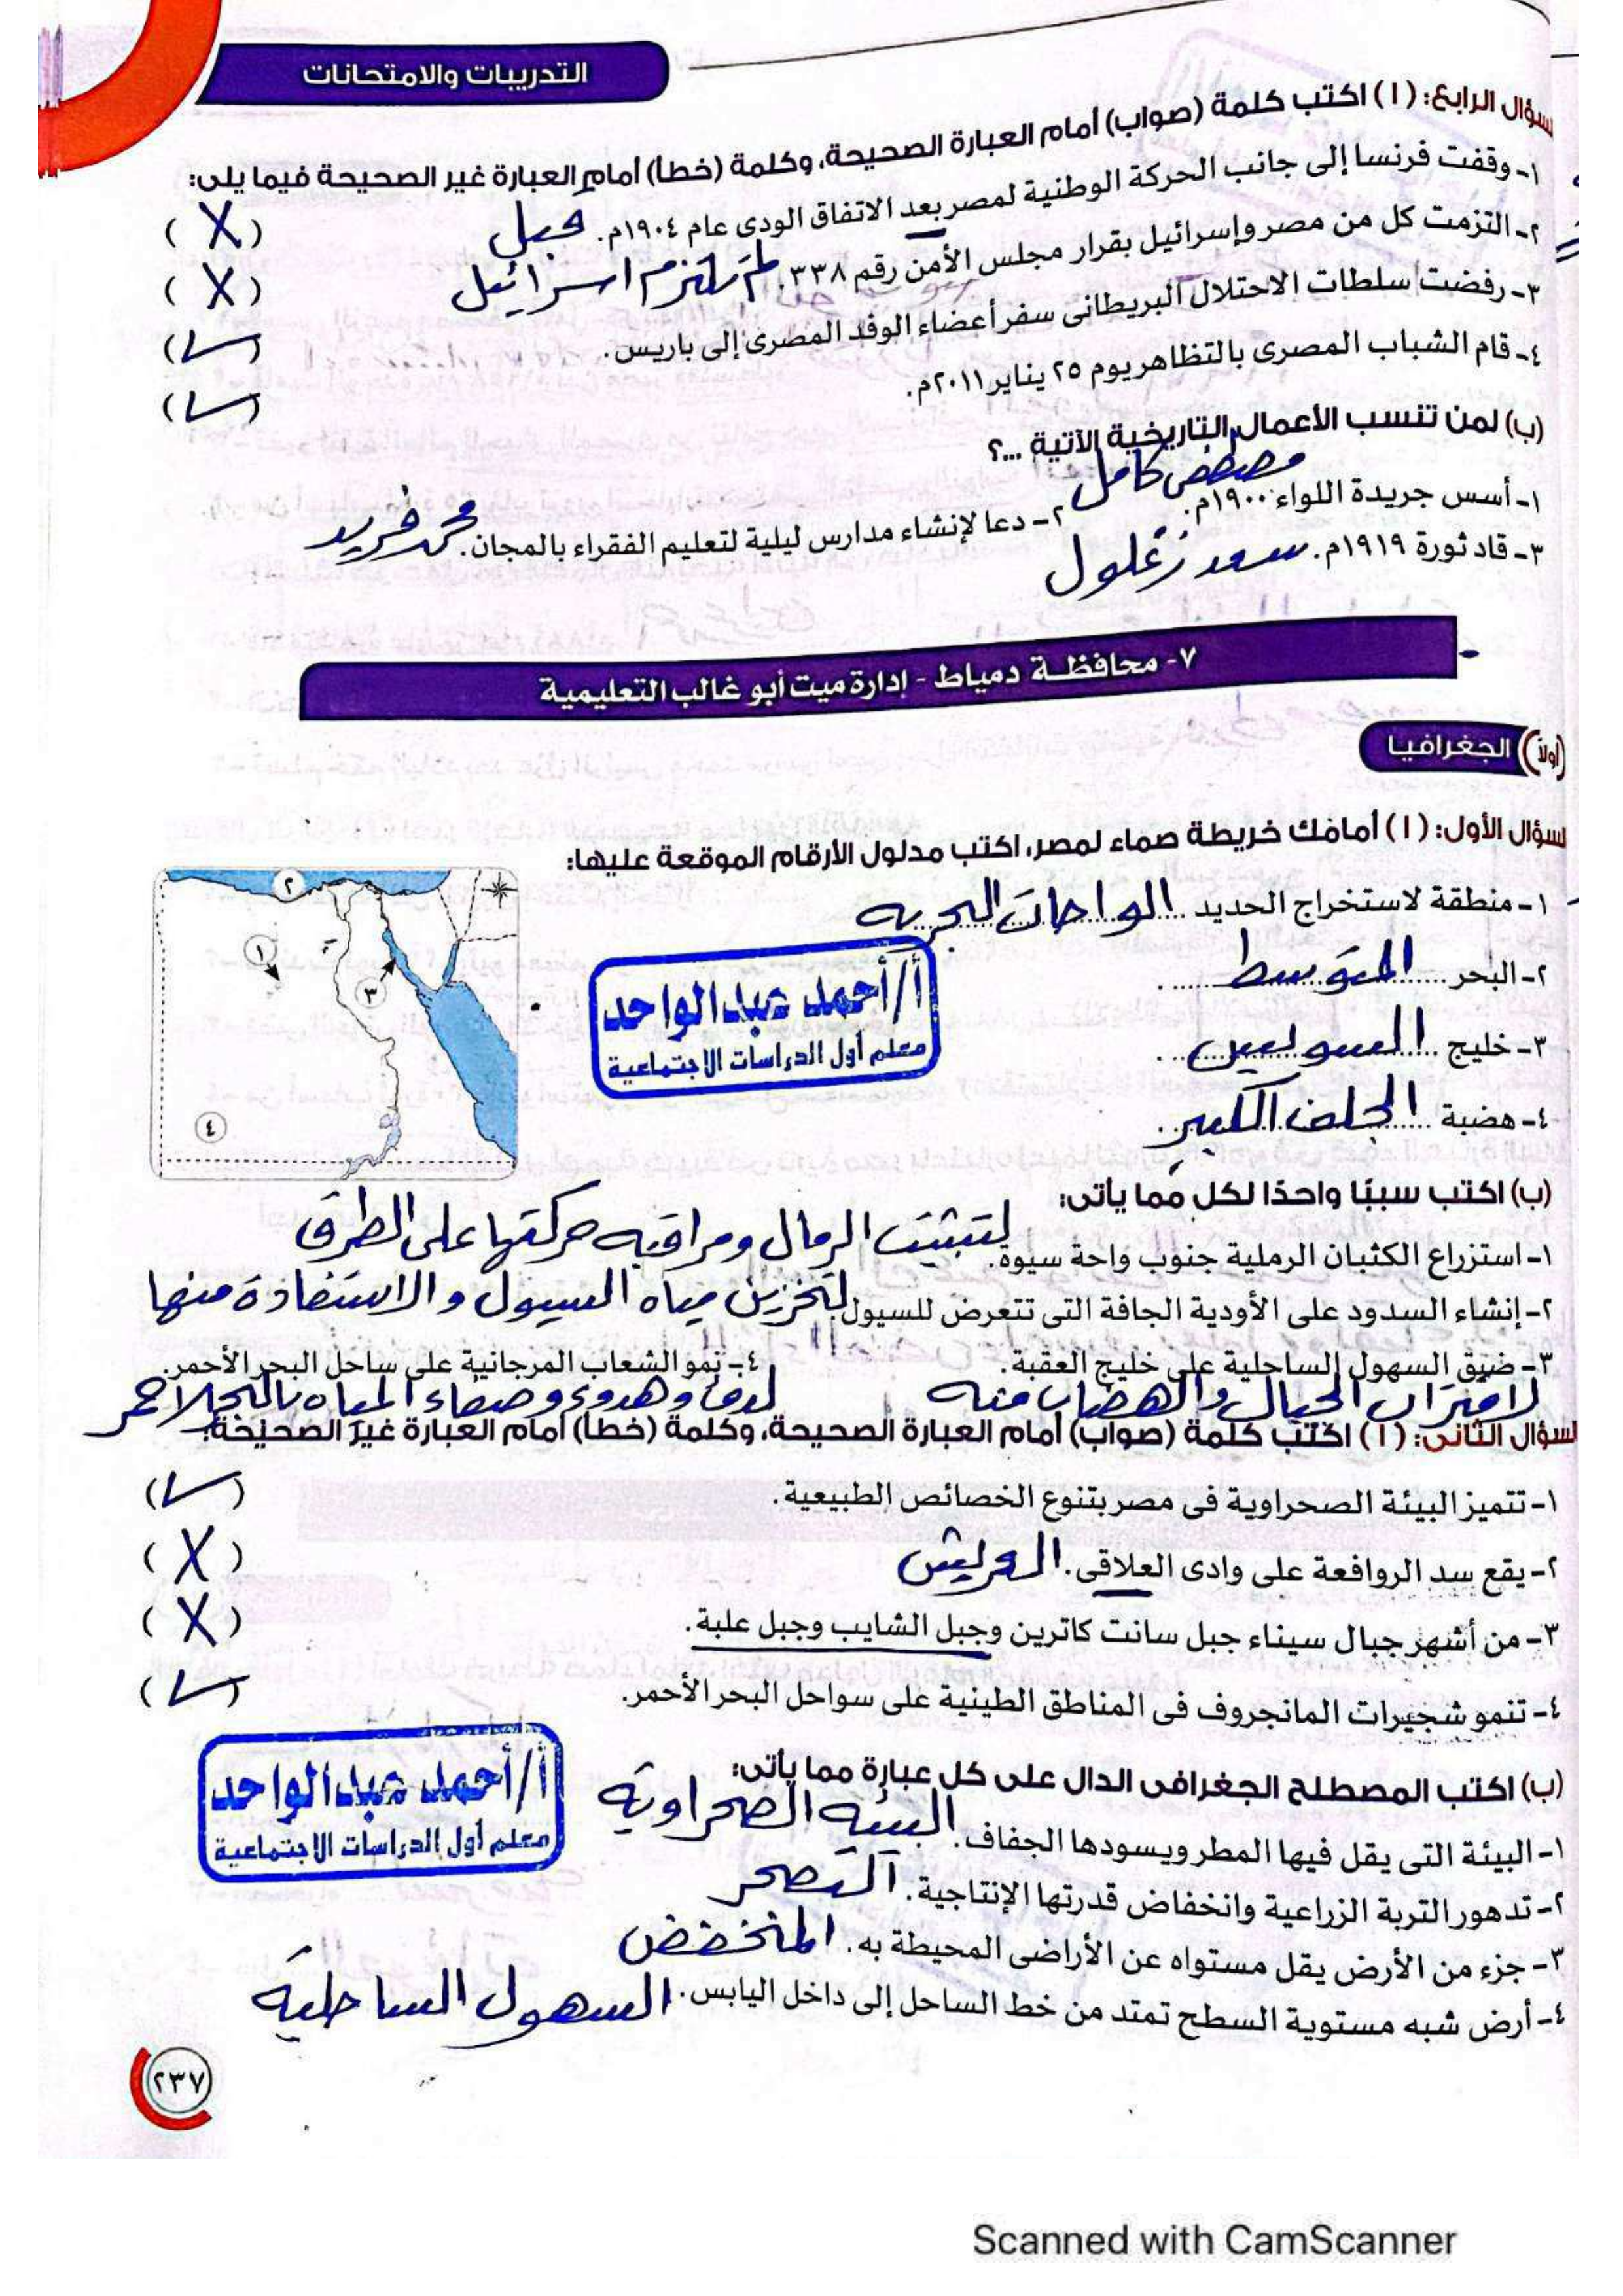 التدريبات والامتحانات
السؤال الرابع: (ا) اكتب كلمة (صواب) أمام العبارة الصحيحة، وكلمة (خطأ) أمام العبارة غير الصحيحة فيما يلى:
١- وقفت فرنسا إلى جانب الحركة الوطنية لمصر بعد الاتفاق الودى عام ١٩٠٤م. قبل (X)
٢- التزمت كل من مصر وإسرائيل بقرار مجلس الأمن رقم ٣٣٨. لم تلتزم اسرائيل (X)
٣- رفضت سلطات الاحتلال البريطانى سفر أعضاء الوفد المصرى إلى باريس. (✓)
٤- قام الشباب المصرى بالتظاهر يوم ٢٥ يناير ٢٠١١م. (✓)
(ب) لمن تنسب الأعمال التاريخية الآتية ...؟
١- أسس جريدة اللواء ١٩٠٠م. مصطفى كامل ٢- دعا لإنشاء مدارس ليلية لتعليم الفقراء بالمجان. محمد فريد
٣- قاد ثورة ١٩١٩م. سعد زغلول
٧- محافظة دمياط - إدارة ميت أبو غالب التعليمية
(أولاً) الجغرافيا
السؤال الأول: (ا) أمامك خريطة صماء لمصر، اكتب مدلول الأرقام الموقعة عليها:
١- منطقة لاستخراج الحديد الواحات البحرية
٢- البحر المتوسط
٣- خليج السويس
٤- هضبة الجلف الكبير
١
٢
٣
٤
أ/أحمد عبدالواحد
معلم أول الدراسات الاجتماعية
(ب) اكتب سببًا واحدًا لكل مما يأتى:
١- استزراع الكثبان الرملية جنوب واحة سيوة. لتثبيت الرمال ومراقبة حركتها على الطرق
٢- إنشاء السدود على الأودية الجافة التى تتعرض للسيول. لتخزين مياه السيول والاستفادة منها
٣- ضيق السهول الساحلية على خليج العقبة. ٤- نمو الشعاب المرجانية على ساحل البحر الأحمر.
لاقتراب الجبال والهضاب منه لدفء وهدوء وصفاء المياه بالبحر الاحمر
السؤال الثانى: (ا) اكتب كلمة (صواب) أمام العبارة الصحيحة، وكلمة (خطأ) أمام العبارة غير الصحيحة:
١- تتميز البيئة الصحراوية فى مصر بتنوع الخصائص الطبيعية. (✓)
٢- يقع سد الروافعة على وادى العلاقى. العريش (X)
٣- من أشهر جبال سيناء جبل سانت كاترين وجبل الشايب وجبل علبة. (X)
٤- تنمو شجيرات المانجروف فى المناطق الطينية على سواحل البحر الأحمر. (✓)
(ب) اكتب المصطلح الجغرافى الدال على كل عبارة مما يأتى:
١- البيئة التى يقل فيها المطر ويسودها الجفاف. البيئة الصحراوية
٢- تدهور التربة الزراعية وانخفاض قدرتها الإنتاجية. التصحر
٣- جزء من الأرض يقل مستواه عن الأراضى المحيطة به. المنخفض
٤- أرض شبه مستوية السطح تمتد من خط الساحل إلى داخل اليابس. السهول الساحلية
أ/أحمد عبدالواحد
معلم أول الدراسات الاجتماعية
٢٣٧
Scanned with CamScanner